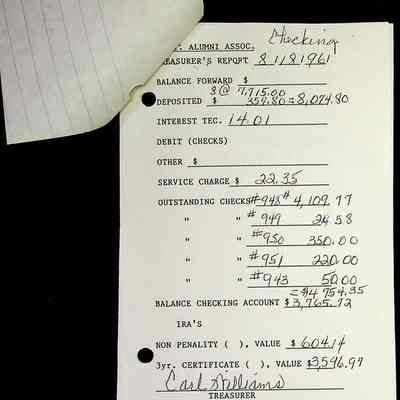 Checking
ALUMNI ASSOC.
TREASURER'S REPORT 8/1/81961
BALANCE FORWARD $
8 @ 7,715.00
DEPOSITED $ 359.80 = 8,074.80
INTEREST TEC. 14.01
DEBIT (CHECKS)
OTHER $
SERVICE CHARGE $ 22.35
OUTSTANDING CHECKS #948 # 4,109.77
" " #949 24 58
" " #950 350.00
" " #951 220.00
" " #943 50.00
= $4 754.35
BALANCE CHECKING ACCOUNT $ 3,765.72
IRA'S
NON PENALITY ( ), VALUE $ 604.14
3yr. CERTIFICATE ( ), VALUE $3,546.97
Carl Williams
TREASURER